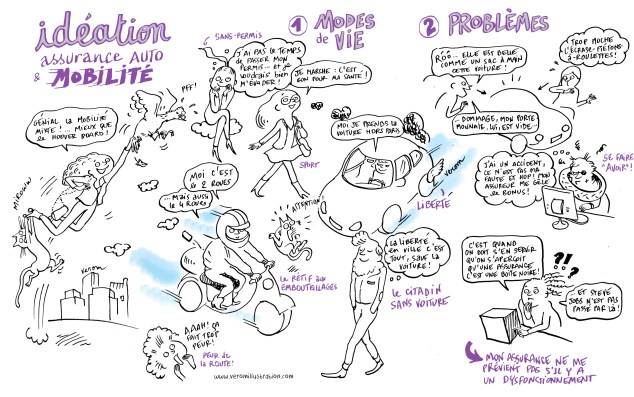 idéation
assurance AUTO
& MOBILITÉ
GÉNIAL LA MOBILITÉ
MIXTE !... MIEUX QUE
le HOOVER BOARD !
PFF!
MIAOUW
vroom
SANS-PERMIS
J'AI PAS LE TEMPS
DE PASSER MON
PERMIS... et je
voudrais bien
M'ÉVADER !
1 MODES
de VIE
JE MARCHE : C'EST
BON POUR MA SANTÉ !
SPORT
MOI C'EST
le 2 ROUES
...MAIS AUSSI
le 4 ROUES
ATTENTION
LE RÉTIF AUX
EMBOUTEILLAGES
AAAH! ÇA
FAIT TROP
PEUR!
PEUR de
la ROUTE!
www.veromillustration.com
MOI JE PRENDS LA
VOITURE HORS PARIS
vroom
LIBERTÉ
LA LIBERTÉ,
en VILLE C'EST
TOUT, SAUF LA
VOITURE!
le CITADIN
SANS VOITURE
2 PROBLÈMES
RÔÔ... ELLE EST BELLE
COMME UN SAC À MAIN
CETTE VOITURE !
TROP MOCHE
L'ÉCRASE-PIÉTONS
-À-ROULETTES!
...DOMMAGE, MON PORTE
MONNAIE, LUI, EST VIDE...
J'AI UN ACCIDENT,
CE N'EST PAS MA
FAUTE ET HOP! MON
ASSUREUR ME GÈLE
le BONUS!
SE FAIRE
"AVOIR"!
C'EST QUAND
ON DOIT S'EN SERVIR
QU'ON S'APERÇOIT
QU'UNE ASSURANCE
C'EST UNE BOÎTE NOIRE!
?!
!!
ET STEVE
JOBS N'EST PAS
PASSÉ PAR LÀ !
MON ASSURANCE NE ME
PRÉVIENT PAS S'IL Y A
UN DYSFONCTIONNEMENT